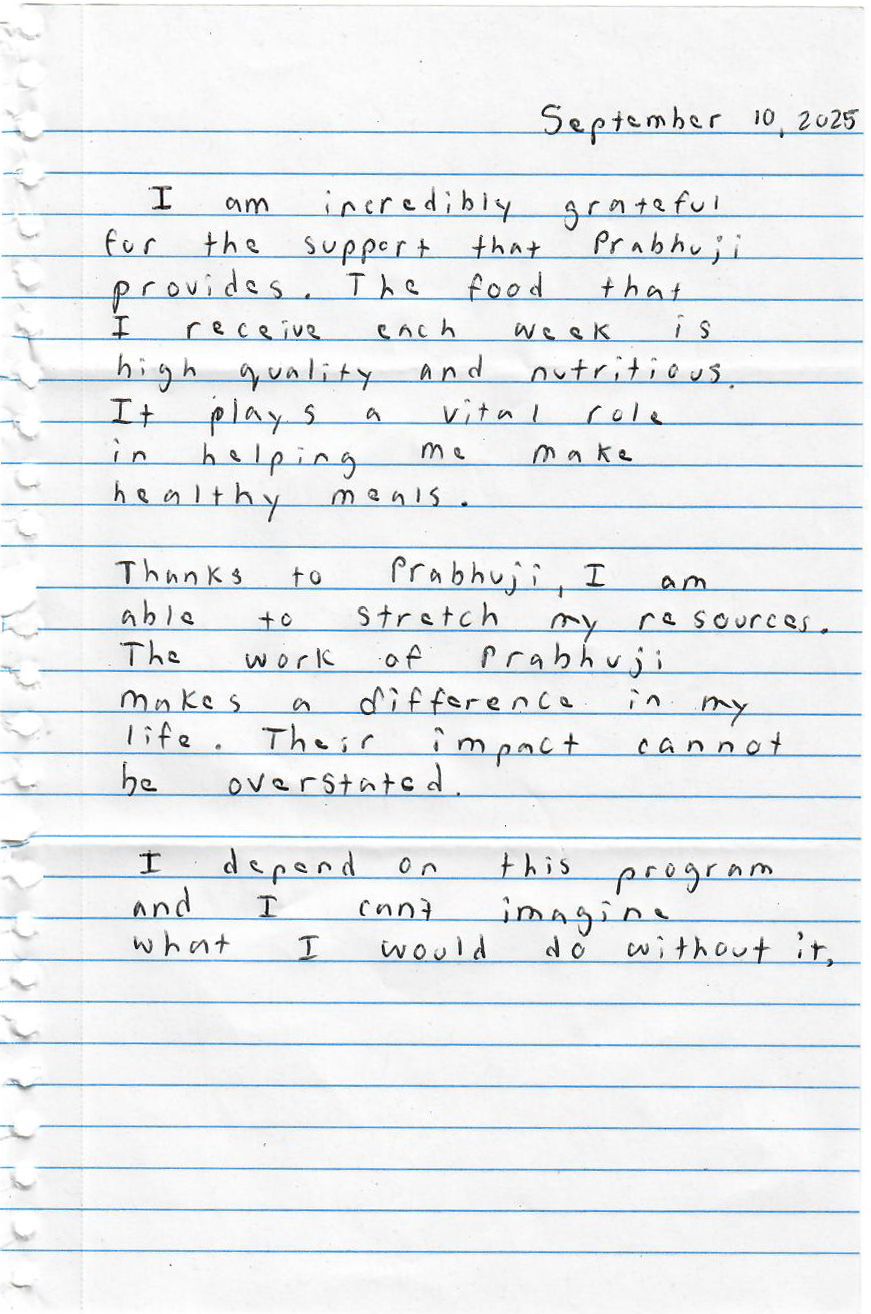 September 10, 2025
I am incredibly grateful
for the support that Prabhuji
provides. The food that
I receive each week is
high quality and nutritious.
It plays a vital role
in helping me make
healthy meals.
Thanks to Prabhuji, I am
able to stretch my resources.
The work of Prabhuji
makes a difference in my
life. Their impact cannot
be overstated.
I depend on this program
and I can't imagine
what I would do without it,